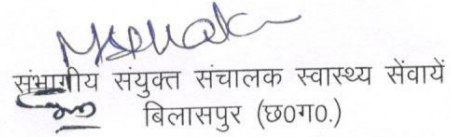 संभागीय संयुक्त संचालक स्वास्थ्य सेंवायें
बिलासपुर (छ0ग0.)